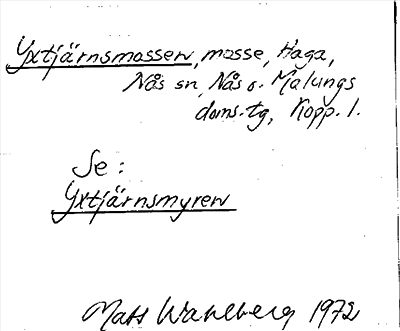 Yxtjärnsmossen, mosse, Haga,
Nås sn, Nås o. Malungs
doms.tg, Kopp. l.
Se:
Yxtjärnsmyren
Mats Wahlberg 1972